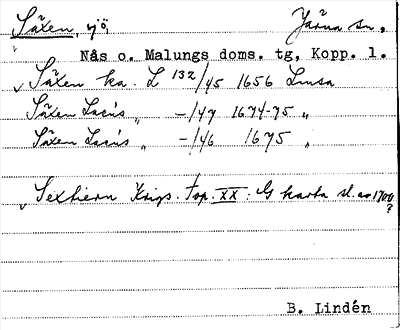 Säxen, sjö Järna sn,
Nås o. Malungs doms. tg, Kopp. l.
Säxen ka. L 132/45 1656 Lmsa
Säxen Lacus „ -/47 1674-75 „
Säxen Lacus „ -/46 1675 „
Sexhiern Krigs. top. XX: G karta sl. av 1700 ?
B. Lindén